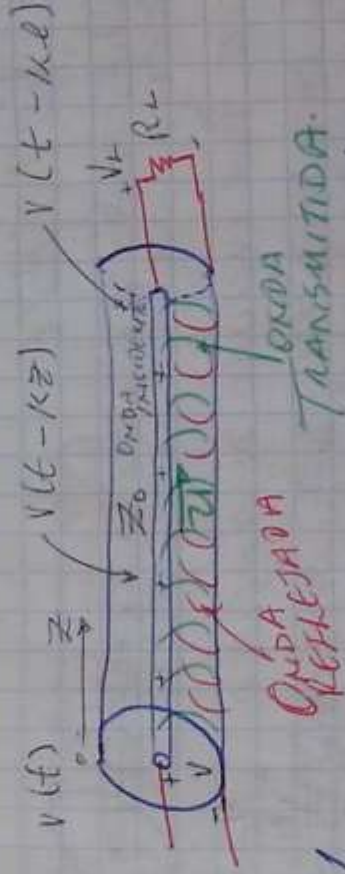 V(t)
Z
V(t-KZ)
V(t-Kl)
Z₀
ONDA
INCIDENTE
+
V
-
+ V_L
R_L
-
ONDA
REFLEJADA
ONDA
TRANSMITIDA.